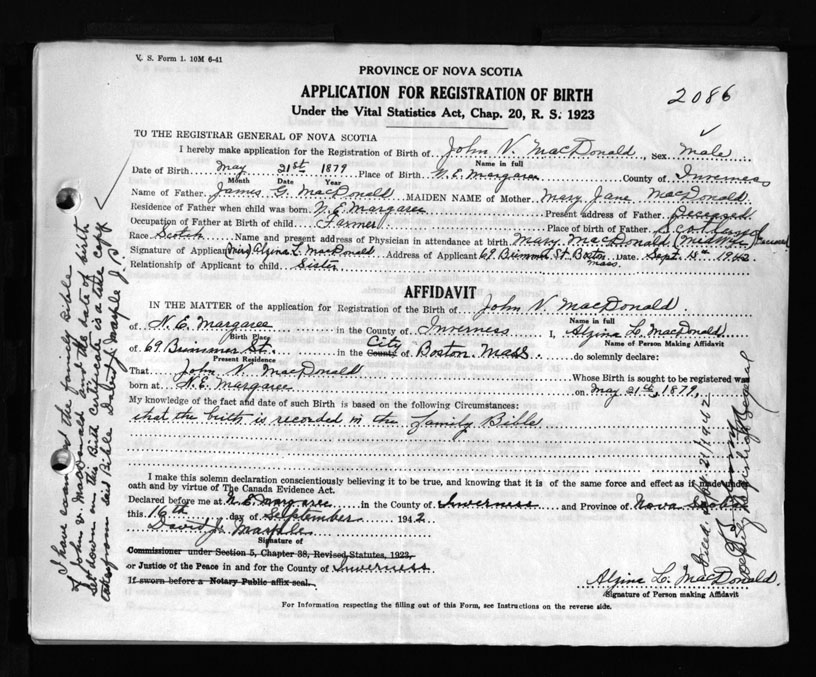 V. S. Form 1. 10M 6-41
PROVINCE OF NOVA SCOTIA
APPLICATION FOR REGISTRATION OF BIRTH
2086
Under the Vital Statistics Act, Chap. 20, R. S. 1923
TO THE REGISTRAR GENERAL OF NOVA SCOTIA
I hereby make application for the Registration of Birth of John V. MacDonald, Sex Male
Name in full
Date of Birth May 21st 1879 Place of Birth N.E. Margaree County of Inverness
Month Date Year
Name of Father James G. MacDonald MAIDEN NAME of Mother Mary Jane MacDonald
Residence of Father when child was born N.E. Margaree Present address of Father Deceased
Occupation of Father at Birth of child Farmer Place of birth of Father Scotland
Race Scotch Name and present address of Physician in attendance at birth Mary MacDonald (Midwife) Deceased
Signature of Applicant (Miss) Algina L. MacDonald Address of Applicant 69 Brimmer St. Boston Mass. Date Sept. 15th 1942
Relationship of Applicant to child Sister
AFFIDAVIT
IN THE MATTER of the application for Registration of the Birth of John V. MacDonald
Name in full
of N.E. Margaree in the County of Inverness I, Algina L. MacDonald
Birth Place Name of Person Making Affidavit
of 69 Brimmer St. in the County City of Boston Mass. do solemnly declare:
Present Residence
That John V. MacDonald Whose Birth is sought to be registered was
born at N.E. Margaree on May 21st, 1879,
My knowledge of the fact and date of such Birth is based on the following Circumstances:
that the birth is recorded in the family Bible
I make this solemn declaration conscientiously believing it to be true, and knowing that it is of the same force and effect as if made under
oath and by virtue of The Canada Evidence Act.
Declared before me at N.E. Margaree in the County of Inverness and Province of Nova Scotia
this 16th day of September 1942
David J. Marple
Signature of
Commissioner under Section 5, Chapter 38, Revised Statutes, 1923,
or Justice of the Peace in and for the County of Inverness
If sworn before a Notary Public affix seal.
Algina L. MacDonald
Signature of Person making Affidavit
For Information respecting the filling out of this Form, see Instructions on the reverse side.
I have examined the family Bible
of John V. MacDonald and the date of birth
set down on this Birth certificate is a true copy
taken from said Bible David J. Marple J.P.
Sept. 21/1942
Deputy Registrar General